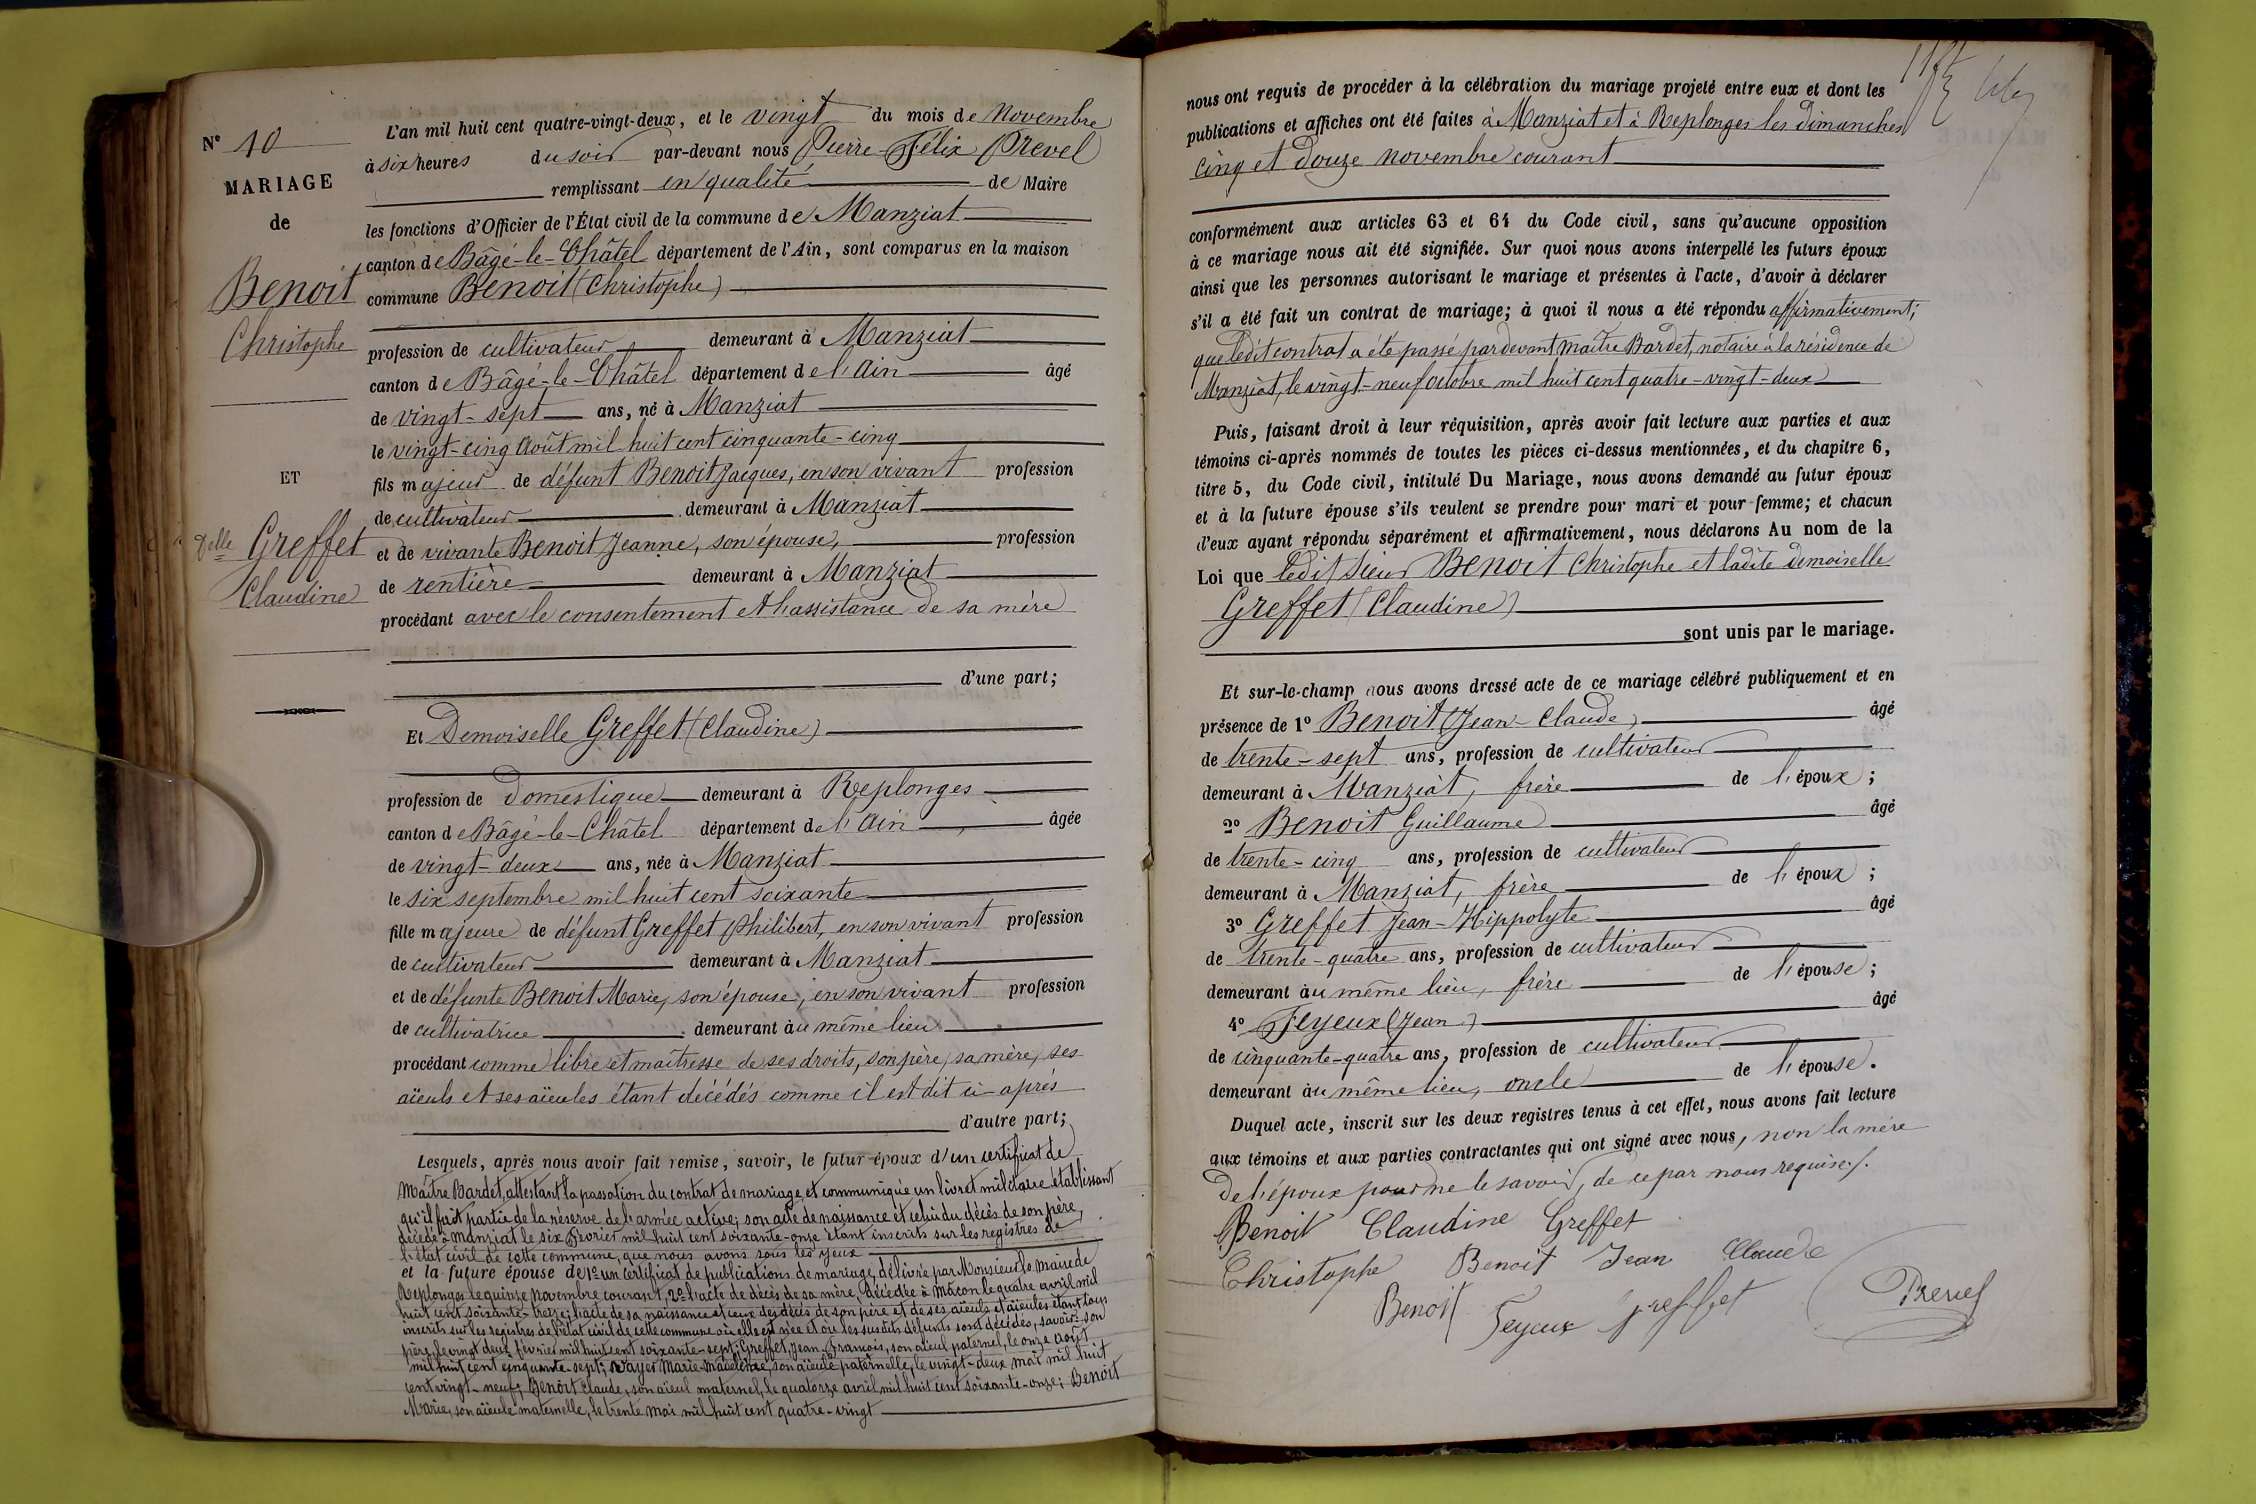 N° 10
MARIAGE
de
Benoit
Christophe
ET
Delle Greffet
Claudine
L'an mil huit cent quatre-vingt-deux, et le vingt du mois de Novembre
à six heures du soir par-devant nous Pierre-Félix Prevel
remplissant en qualité de Maire
les fonctions d'Officier de l'État civil de la commune de Manziat
canton de Bâgé-le-Châtel département de l'Ain, sont comparus en la maison
commune Benoit (Christophe)
profession de cultivateur demeurant à Manziat
canton de Bâgé-le-Châtel département de l'Ain âgé
de vingt-sept ans, né à Manziat
le vingt-cinq Août mil huit cent cinquante-cinq
fils majeur de défunt Benoit Jacques, en son vivant profession
de cultivateur demeurant à Manziat
et de vivante Benoit Jeanne, son épouse, profession
de rentière demeurant à Manziat
procédant avec le consentement et l'assistance de sa mère
d'une part;
Et Demoiselle Greffet (Claudine)
profession de domestique demeurant à Replonges
canton de Bâgé-le-Châtel département de l'Ain âgée
de vingt-deux ans, née à Manziat
le six septembre mil huit cent soixante
fille majeure de défunt Greffet Philibert, en son vivant profession
de cultivateur demeurant à Manziat
et de défunte Benoit Marie, son épouse, en son vivant profession
de cultivatrice demeurant au même lieu
procédant comme libre et maîtresse de ses droits, son père, sa mère, ses
aïeuls et ses aïeules étant décédés comme il est dit ci-après
d'autre part;
Lesquels, après nous avoir fait remise, savoir, le futur époux d'un certificat de
Maître Bardet, attestant la passation du contrat de mariage, et communiqué un livret militaire établissant
qu'il fait partie de la réserve de l'armée active; son acte de naissance et celui du décès de son père,
décédé à Manziat le six février mil huit cent soixante-onze étant inscrits sur les registres de
l'état civil de cette commune, que nous avons sous les yeux
et la future épouse de 1° un certificat de publications de mariage, délivré par Monsieur le maire de
Replonges le quinze novembre courant, 2° l'acte de décès de sa mère, décédée à Mâcon le quatre avril mil
huit cent soixante-treize; l'acte de sa naissance et ceux des décès de son père et de ses aïeuls et aïeules étant tous
inscrits sur les registres de l'état civil de cette commune où elle est née et où les susdits défunts sont décédés, savoir: son
père, le vingt deux février mil huit cent soixante-sept; Greffet, Jean François, son aïeul paternel, le onze août
mil huit cent cinquante-sept; Marie-Madeleine, son aïeule paternelle, le vingt-deux mai mil huit
cent vingt-neuf; Benoit Claude, son aïeul maternel, le quatorze avril mil huit cent soixante-onze; Benoit
Marie, son aïeule maternelle, le trente mai mil huit cent quatre-vingt
nous ont requis de procéder à la célébration du mariage projeté entre eux et dont les
publications et affiches ont été faites à Manziat et à Replonges les dimanches
cinq et douze novembre courant
conformément aux articles 63 et 64 du Code civil, sans qu'aucune opposition
à ce mariage nous ait été signifiée. Sur quoi nous avons interpellé les futurs époux
ainsi que les personnes autorisant le mariage et présentes à l'acte, d'avoir à déclarer
s'il a été fait un contrat de mariage; à quoi il nous a été répondu affirmativement;
que ledit contrat a été passé pardevant maître Bardet, notaire à la résidence de
Manziat, le vingt-neuf octobre mil huit cent quatre-vingt-deux
Puis, faisant droit à leur réquisition, après avoir fait lecture aux parties et aux
témoins ci-après nommés de toutes les pièces ci-dessus mentionnées, et du chapitre 6,
titre 5, du Code civil, intitulé Du Mariage, nous avons demandé au futur époux
et à la future épouse s'ils veulent se prendre pour mari et pour femme; et chacun
d'eux ayant répondu séparément et affirmativement, nous déclarons Au nom de la
Loi que ledit sieur Benoit Christophe et ladite demoiselle
Greffet (Claudine)
sont unis par le mariage.
Et sur-le-champ nous avons dressé acte de ce mariage célébré publiquement et en
présence de 1° Benoit (Jean-Claude) âgé
de trente-sept ans, profession de cultivateur
demeurant à Manziat, frère de l'époux;
2° Benoit Guillaume âgé
de trente-cinq ans, profession de cultivateur
demeurant à Manziat, frère de l'époux;
3° Greffet Jean-Hippolyte âgé
de trente-quatre ans, profession de cultivateur
demeurant au même lieu, frère de l'épouse;
4° Feyeux (Jean) âgé
de cinquante-quatre ans, profession de cultivateur
demeurant au même lieu, oncle de l'épouse.
Duquel acte, inscrit sur les deux registres tenus à cet effet, nous avons fait lecture
aux témoins et aux parties contractantes qui ont signé avec nous, non la mère
de l'époux pour ne le savoir, de ce par nous requise.
Benoit Claudine Greffet
Christophe Benoit Jean Claude
Benoit Feyeux Greffet Prevel